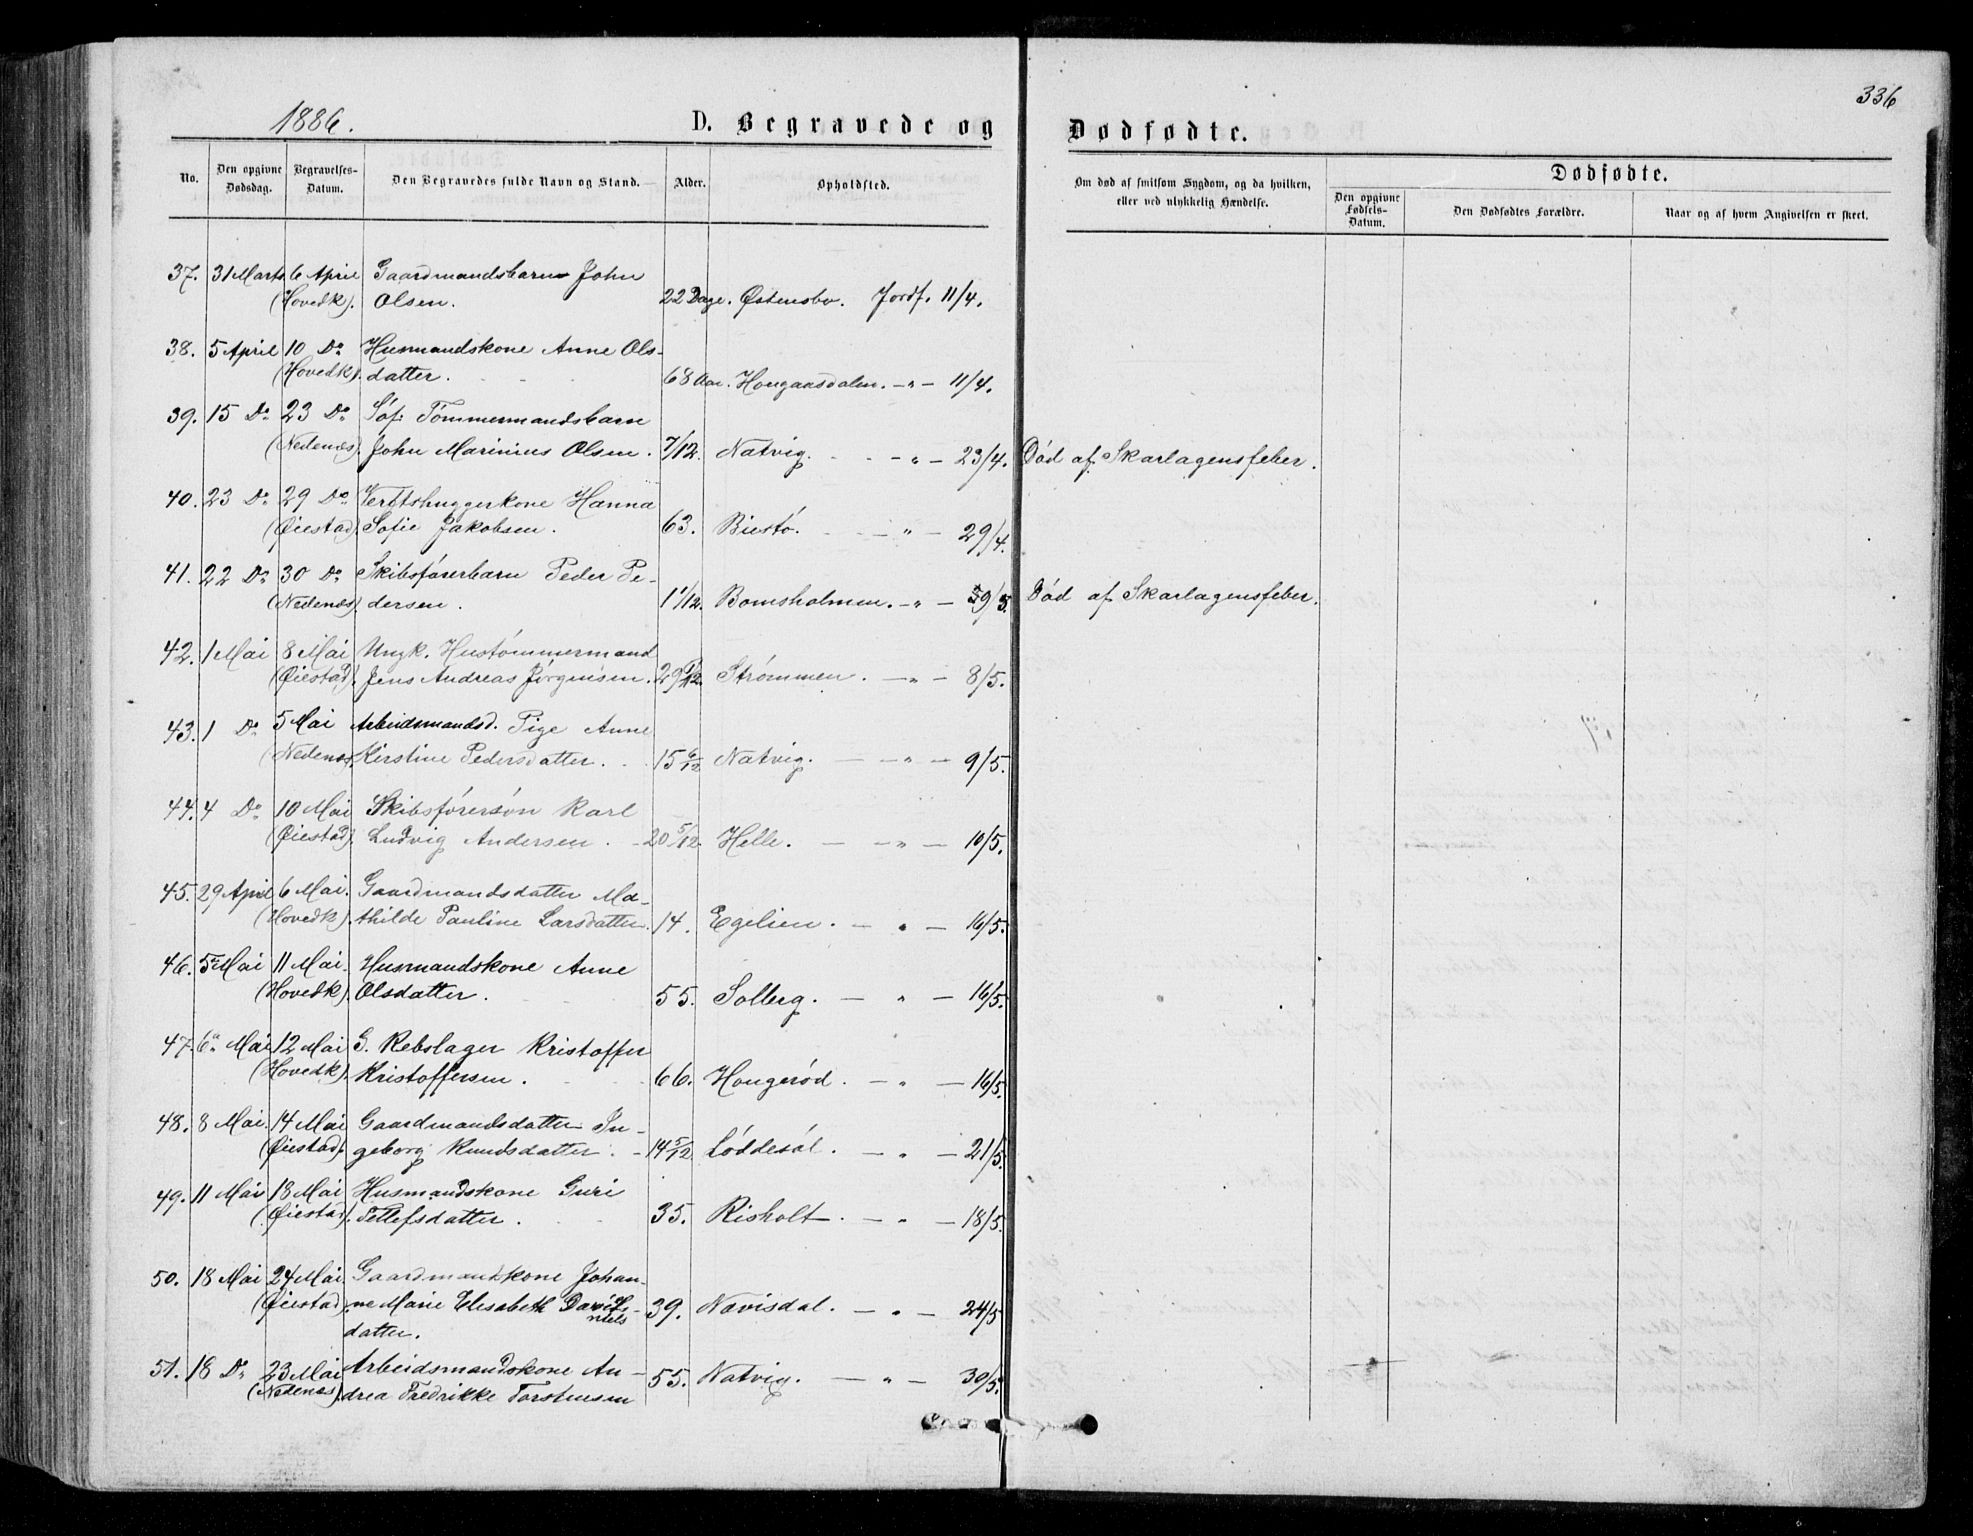 336
1886.
D. Begravede og Dødfødte.
No.
Den opgivne Dødsdag.
Begravelses-Datum.
Den Begravedes fulde Navn og Stand.
Alder.
Opholdsted.
Om død af smitsom Sygdom, og da hvilken, eller ved ulykkelig Hændelse.
Dødfødte.
Den opgivne Fødsels-Datum.
Den Dødfødtes Forældre.
Naar og af hvem Angivelsen er skeet.
37. 31 Marts 6 April Gaardmandsbarn John
(Hovedk). Olsen. 22 Dage. Østensbo. Jordf. 11/4.
38. 5 April 10 Do Husmandskone Anne Ols-
(Hovedk). datter. 68 Aar. Hougaasdalen. -„- 11/4.
39. 15 Do 23 Do Søf. Tømmermandsbarn
(Nedenæs). John Marinius Olsen. 7/12. Natvig. -„- 23/4. Død af Skarlagensfeber.
40. 23 Do 29 Do Verftshuggerkone Hanna
(Øiestad). Sofie Jakobsen. 63. Biestø. -„- 29/4.
41. 22 Do 30 Do Skibsførerbarn Peder Pe-
(Nedenæs) dersen. 1 1/12. Bomsholmen. -„- 9/5. Død af Skarlagensfeber.
42. 1 Mai 8 Mai Ungk. Hustømmermand
(Øiestad). Jens Andreas Jørgensen. 29 /12. Strømmen. -„- 8/5.
43. 1 Do 5 Mai Arbeidsmandsd. Pige Anne
(Nedenæs) Kirstine Pedersdatter. 15 6/12 Natvig. -„- 9/5.
44. 4 Do 10 Mai Skibsførersøn Karl
(Øiestad). Ludvig Andersen. 20 5/12. Helle. -„- 10/5.
45. 29 April 6 Mai. Gaardmandsdatter Ma-
(Hovedk). thilde Pauline Larsdatter. 14. Egelien. -„- 16/5.
46. 5 Mai 11 Mai. Husmandskone Anne
(Hovedk). Olsdatter. 55. Solberg. -„- 16/5.
47. 6 Mai 12 Mai G. Rebslager Kristoffer
(Hovedk). Kristoffersen. 66. Hougerød. -„- 16/5.
48. 8 Mai. 14 Mai Gaardmandsdatter In-
(Øiestad). geborg Knudsdatter. 14 5/12 Løddesøl. -„- 21/5.
49. 11 Mai 18 Mai Husmandskone Guri
(Øiestad). Tellefsdatter. 35. Risholt. -„- 18/5.
50. 18 Mai 24 Mai Gaardmandskone Johan-
(Øiestad). ne Marie Elisabeth
39. Navisdal. -„- 24/5
datter.
51. 18 Do 23 Mai Arbeidsmandskone An-
(Nedenæs). drea Fredrikke Torstensen 55. Natvig. -„- 30/5.